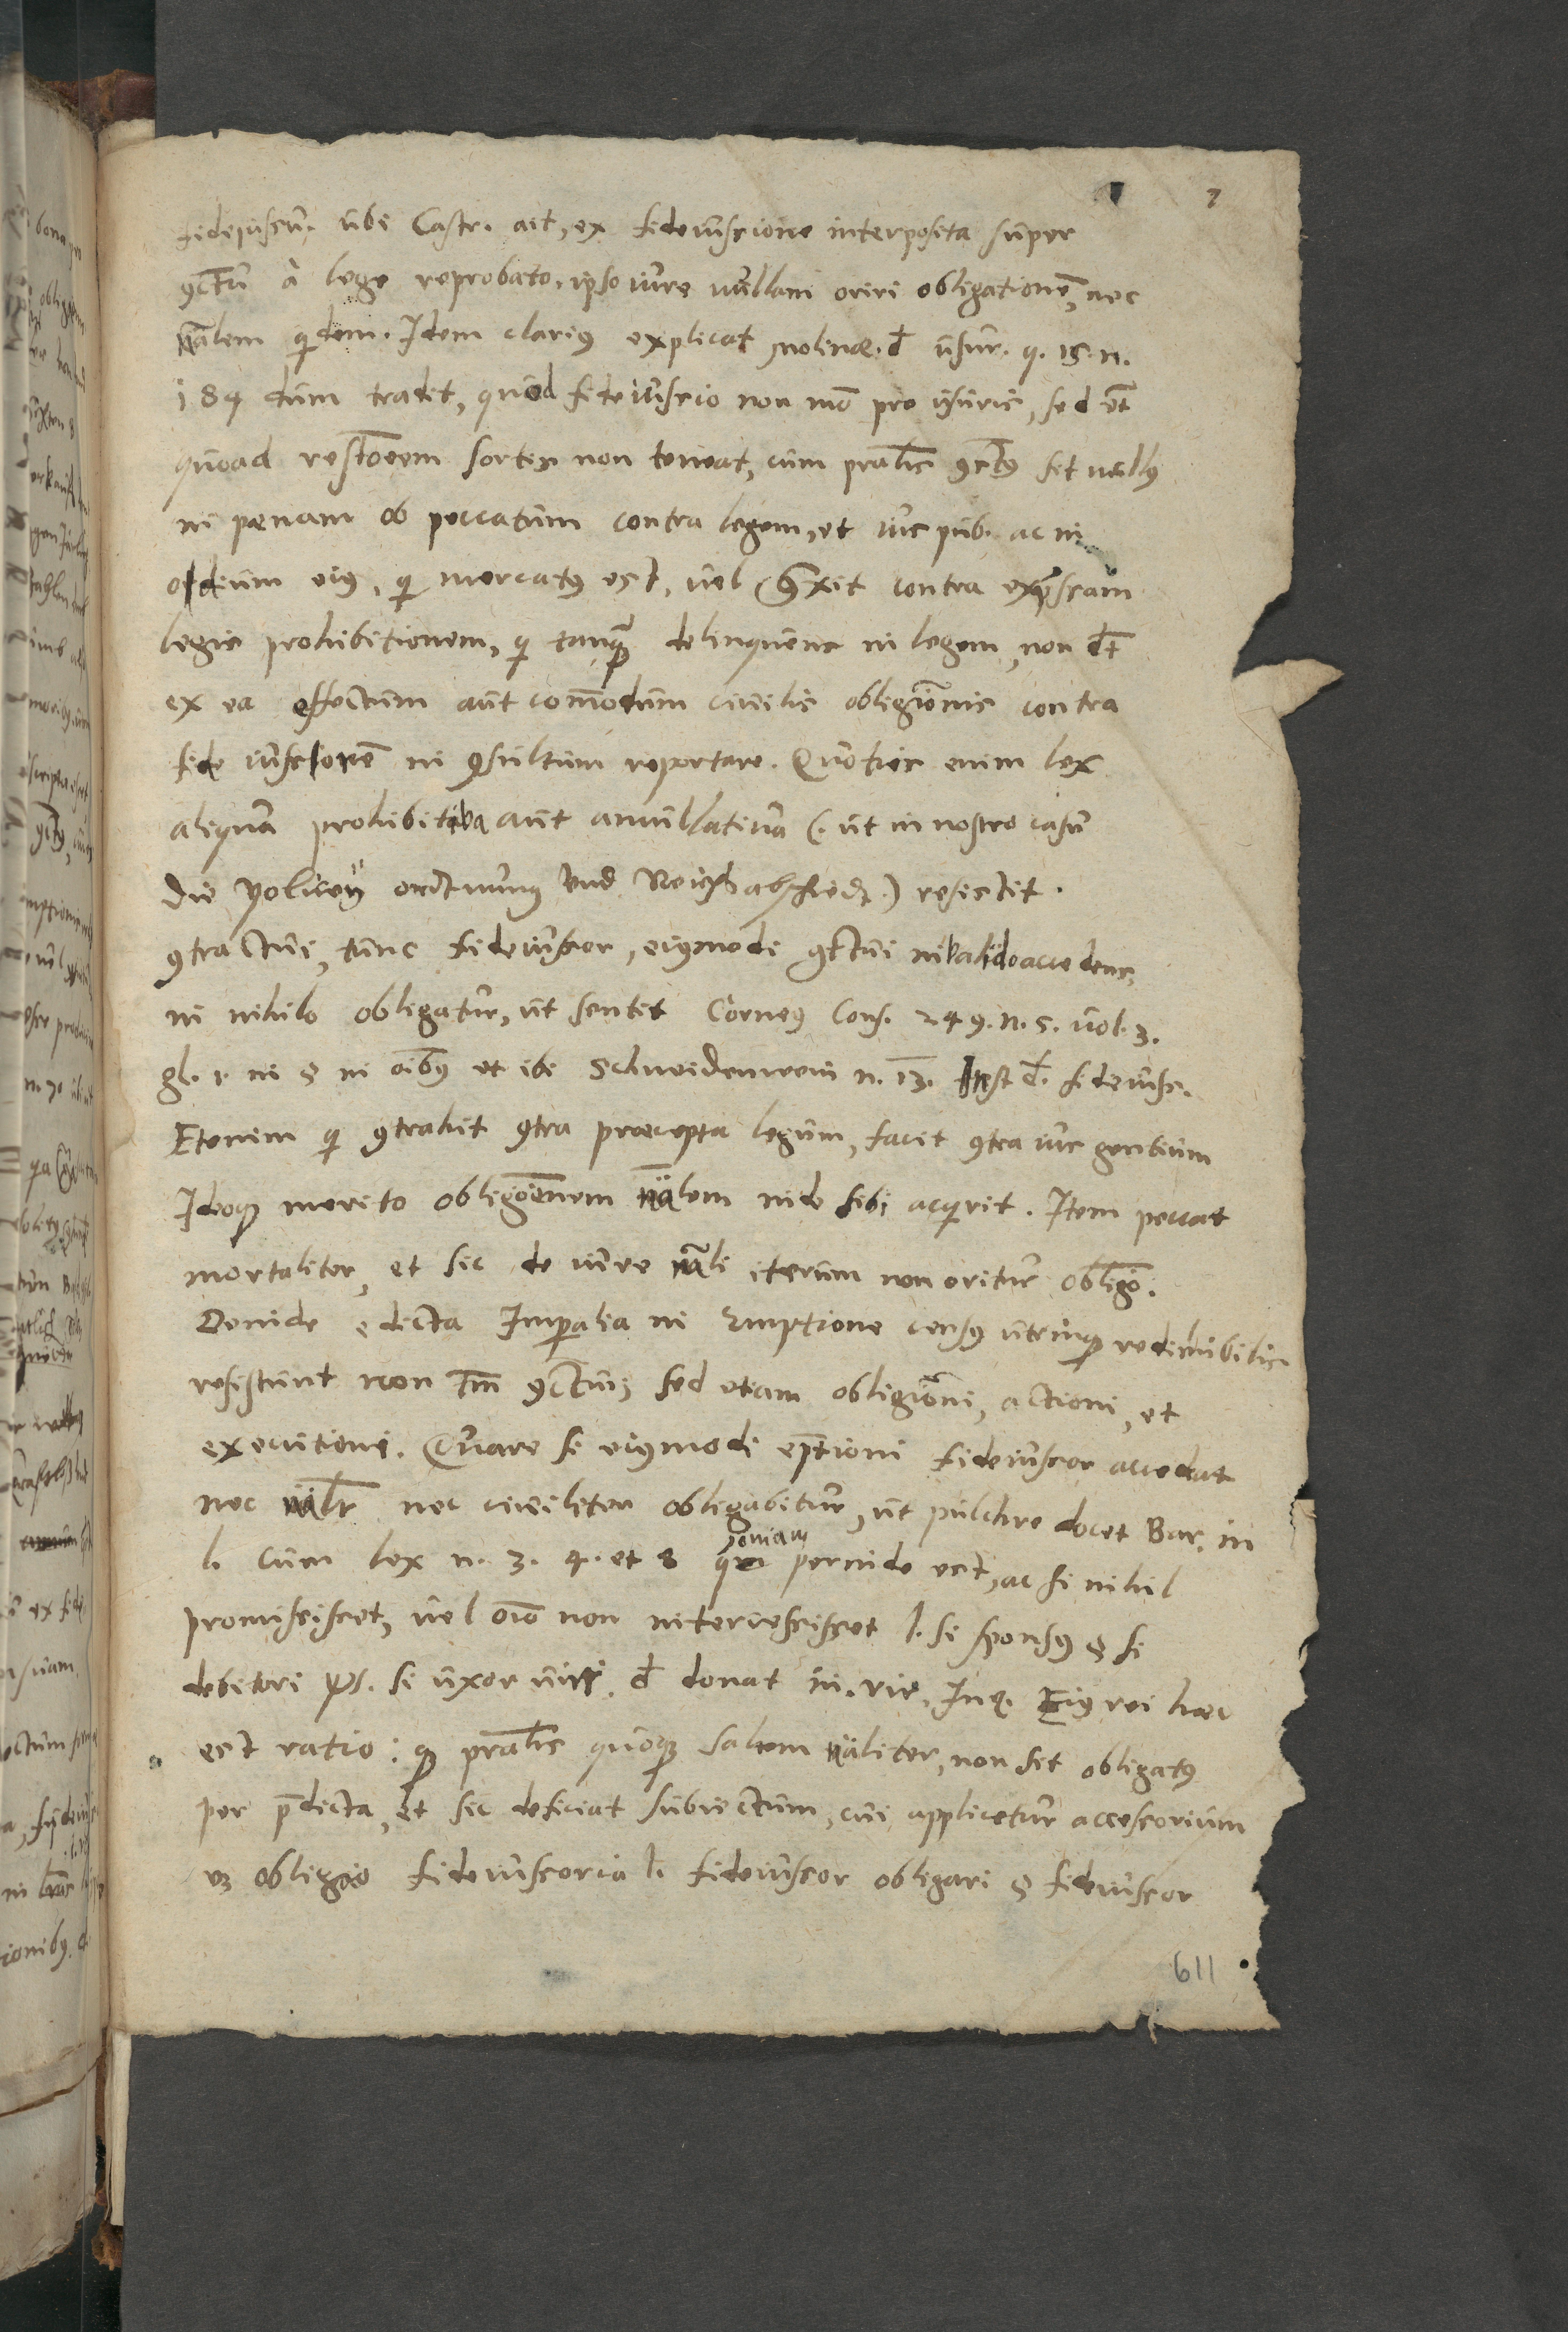 7
fideiuscu. ubi Castr. ait, ex fideiuscione interposita super
9ctu à lege reprobato, ipso iure nullam oriri obligationē, nec
nālem qidem. Idem clarius explicat Molinæ. đ usur. q. 15. n.
184 dum tradit, quod fideiuscio non mō pro usuris, sed ēt
quoad restōem sortis non teneat, cum pralis 9ct9 sit null9
in pænam ob peccatum contra legem, et ius pub. ac in
odium ei9, qi mercat9 est, uel 9traxit contra expressam
legis prohibitionem, qi tanquā delinquens in legem, non dt
ex ea effectum aut com̄odum ciuilis obligōnis contra
fideiusorē in 9sultum reportare. Quoties enim lex
aliqua prohibitiva aut annullatiua (: ut in nostro casu
die policey ordtnung vnd Reichsabschiedt :) resistit
9tractui, tunc fideiussor, ei9modi 9ctui invalido accedens,
in nihilo obligatur, ut sentit Corne9 Cons. 249. n. 5. uol. 3.
gl. 1. in § in oīb9 et ibi Schneidenwein n. 13. Inst đ. fideiusc.
Etenim qi 9trahit 9tra præcepta legum, facit 9tra ius gentium
Ideoq merito obligōenem nālem inde sibi acqirit. Item peccat
mortaliter, et sic de iure nāli iterum non oritur obligō.
Deinde edicta Imperalia in Emptione cens9 utrinq redimibilis
resistunt non tm̄ 9ctui, sed etiam obligōni, actioni, et
executioni. Quare si ei9modi eptioni fideiussor accedat
nec nālr nec ciuiliter obligabitur, ut pulchre docet Bar. in
l. cum lex n. 3. 4. et 8 quoniam perinde est, ac si nihil
promisisset, uel oīo non intercessisset l. si spons9 § si
debitori ℣s. si uxor uiri. đ donat in. vir. Inq. Ei9 rei hæc
est ratio: q pralis quoq saltem nāliter, non sit obligat9
per p̄dicta, et sic deficiat subiectum, cui applicetur accessorium
uz obligao fideiussoria l. fideiussor obligari § fideiussor
611